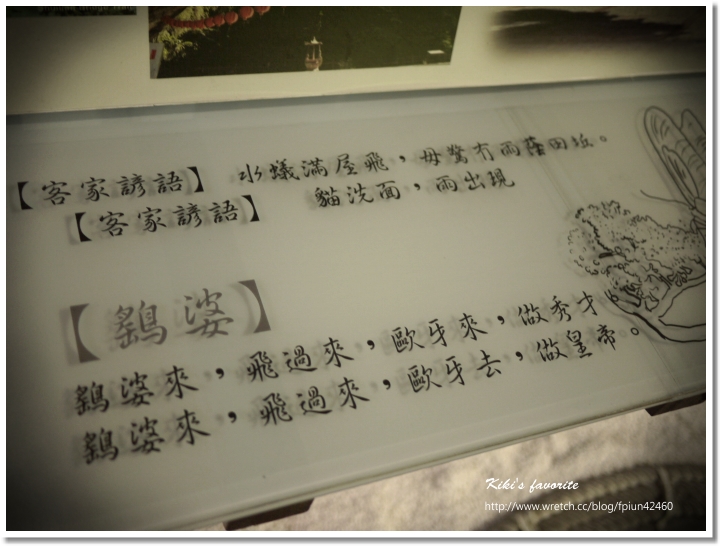 【客家諺語】 水蟻滿屋飛，毋驚冇雨蔭田坵。
【客家諺語】 貓洗面，雨出現
【鷂婆】
鷂婆來，飛過來，歐牙來，做秀才。
鷂婆來，飛過來，歐牙去，做皇帝。
Kiki's favorite
http://www.wretch.cc/blog/fpiun42460